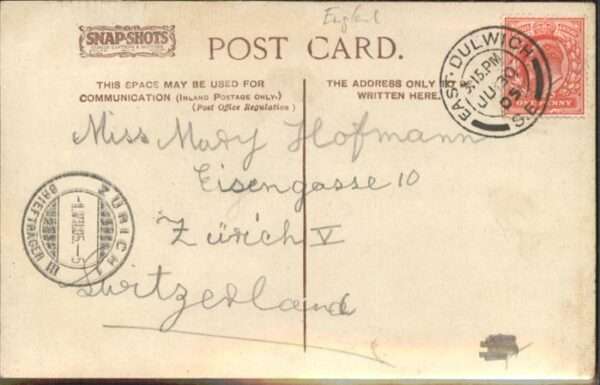 England
SNAP-SHOTS
POST CARD.
THIS SPACE MAY BE USED FOR
COMMUNICATION (INLAND POSTAGE ONLY.)
(Post Office Regulation)
THE ADDRESS ONLY
WRITTEN HERE.
EAST DULWICH S.E.
3.15.PM
JU 30
05
ONE PENNY
Miss Mary Hofmann
Eisengasse 10
Zürich V
Switzerland
ZÜRICH 1
BRIEFTRÄGER III